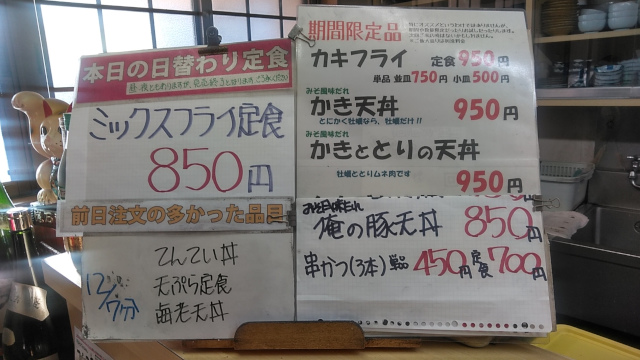 本日の日替わり定食
ミックスフライ定食
850円
前日注文の多かった品目
12/7分
てんてい丼
天ぷら定食
海老天丼
期間限定品
カキフライ 定食 950円
単品 並皿750円 小皿500円
みそ風味だれ
かき天丼 950円
とにかく牡蠣なら、牡蠣だけ!!
みそ風味だれ
かきととりの天丼
牡蠣ととりムネ肉です
950円
みそ風味だれ
俺の豚天丼 850円
串かつ(3本) 単品 450円 定食 700円